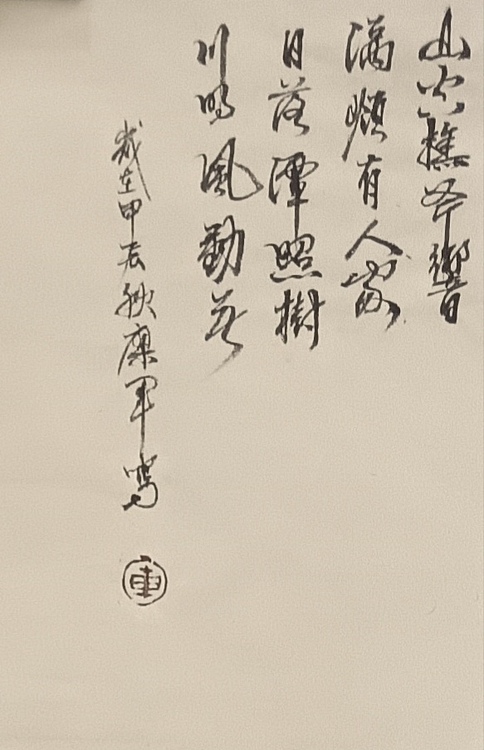 山空樵斧響
隔嶺有人家
日落潭照樹
川明風動花
歲在甲辰秋康軍